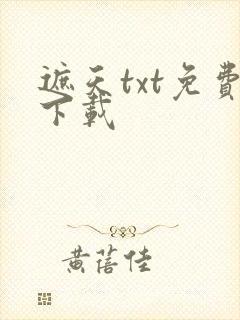 遮天txt免費
下載
黄蓓佳